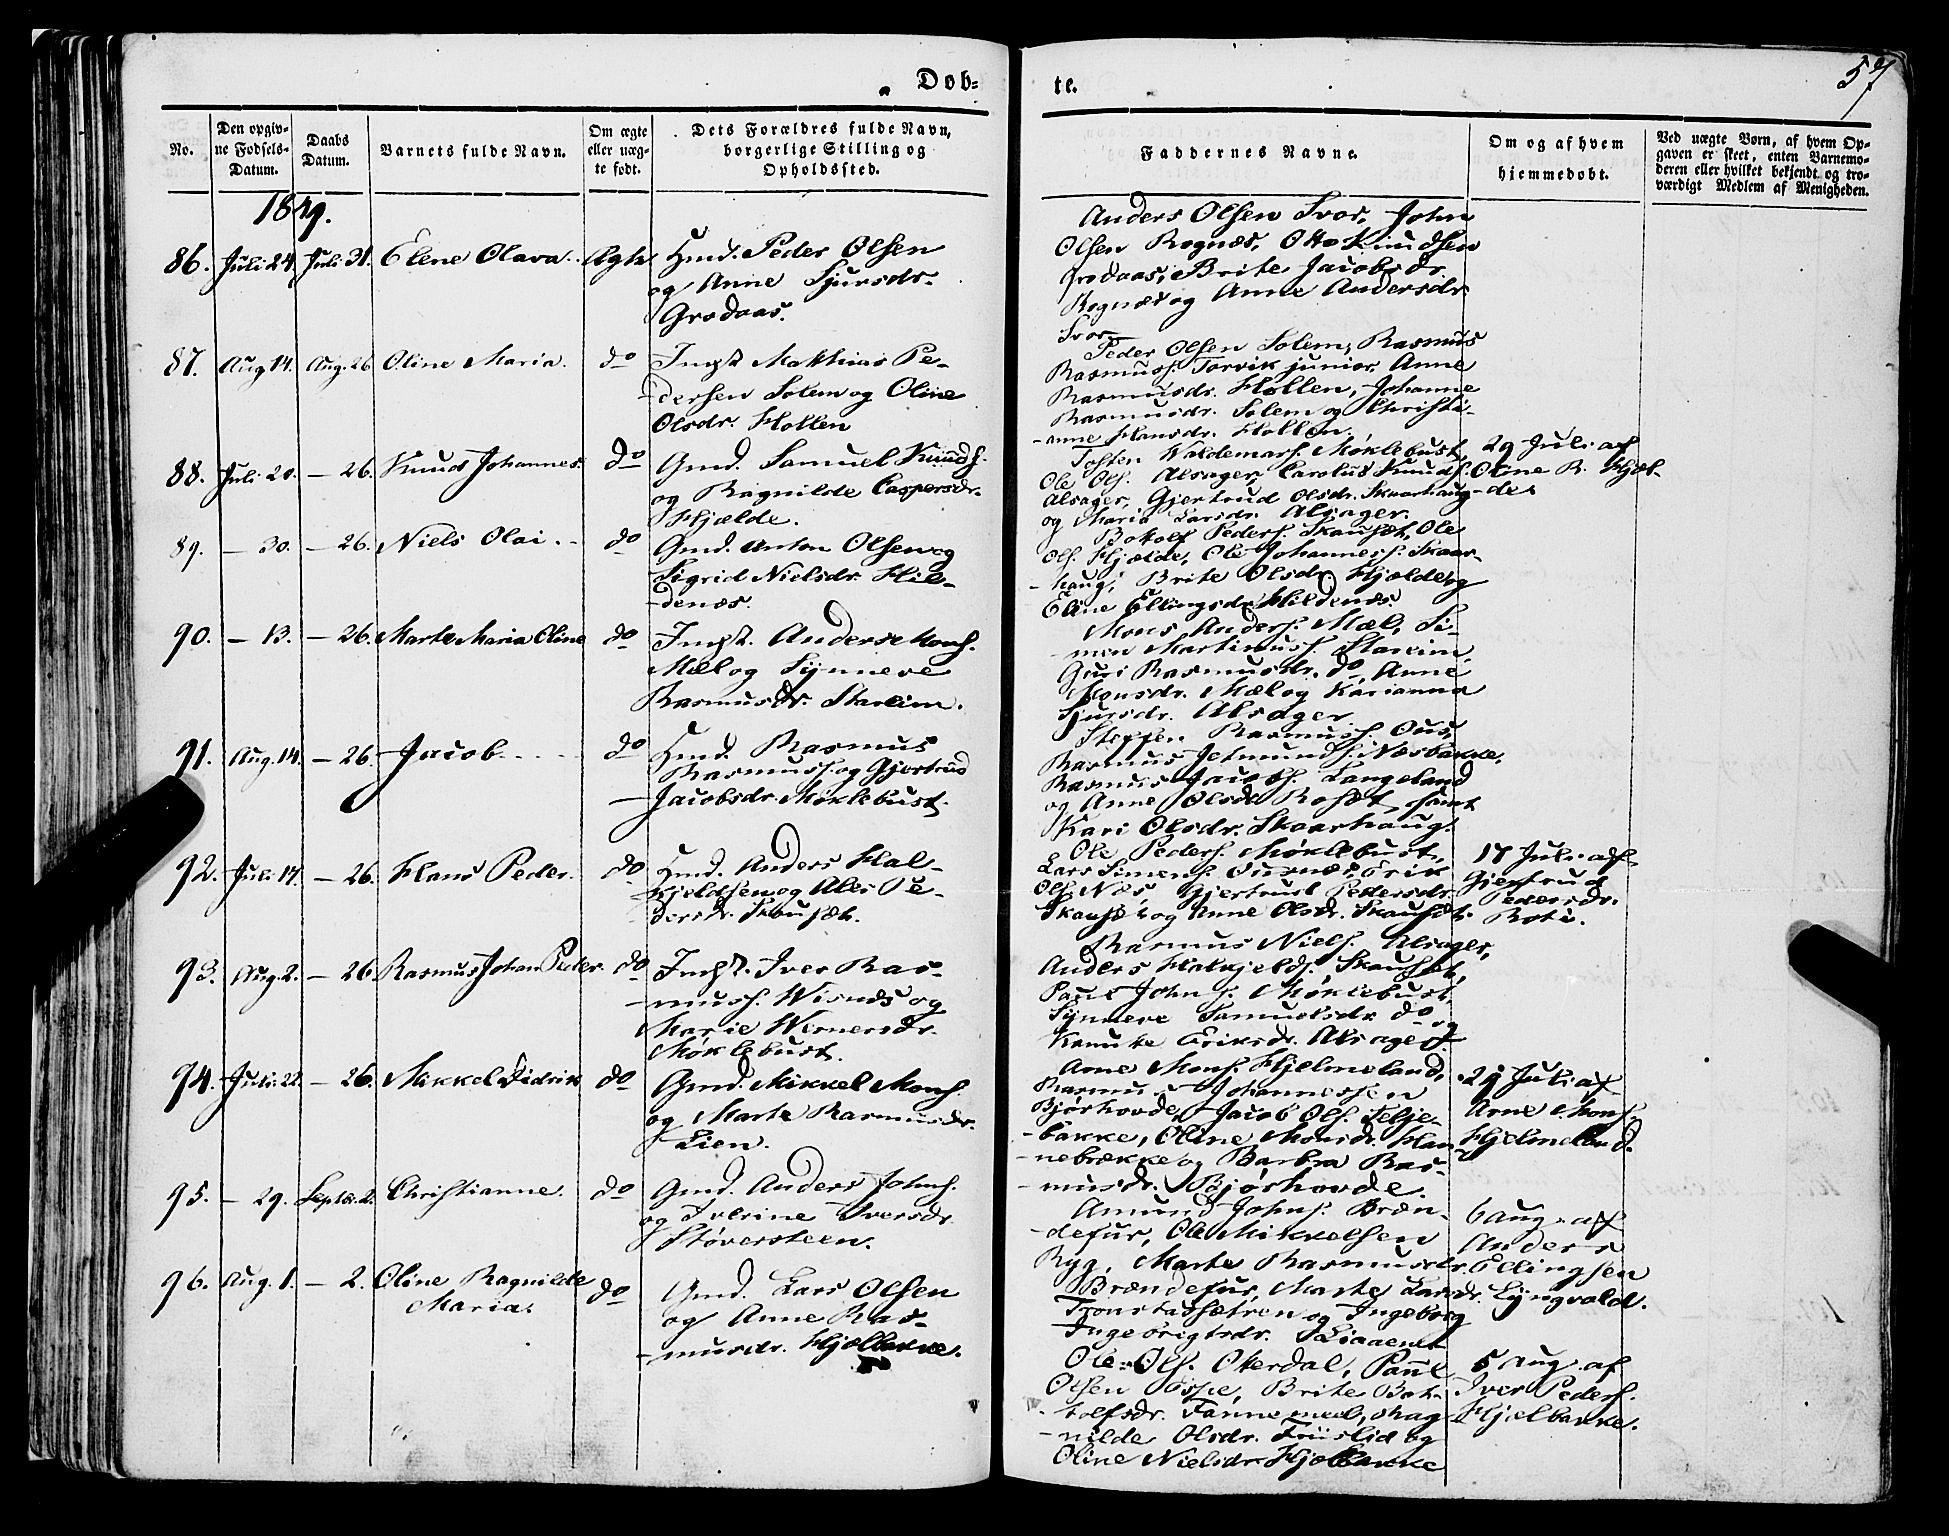 Dob=
te.
57
No.
Den opgiv=
ne Fødsels=
Datum.
Daabs
Datum.
Barnets fulde Navn.
Om ægte
eller uæg=
te født.
Dets Forældres fulde Navn,
borgerlige Stilling og
Opholdssted.
Faddernes Navne.
Om og af hvem
hjemmedøbt.
Ved uægte Børn, af hvem Op=
gaven er skeet, enten Barnemo=
deren eller hvilket bekjendt og tro=
værdigt Medlem af Menigheden.
1849.
86. Juli 24. Juli 31. Elene Olava. Ægte Hmd. Peder Olsen
og Anne Sjursdr.
Grodaas.
Anders Olsen Svor, John
Olsen Rognæs, Otto Knudsen
Grodaas, Brite Jacobsdr.
Rognæs og Anne Andersdr.
Svor
87. Aug 14. Aug. 26 Oline Maria. do Ingst. Matthias Pe-
dersen Solem og Oline
Olsdr. Hollen
Peder Olsen Solem, Rasmus
Rasmuss. Torvik junior, Anne
Rasmusdr. Hollen, Johanne
Rasmusdr. Solem og Christi-
-anne Hansdr. Hollen.
88. Juli 20. - 26. Knud Johannes. do Gmd. Samuel Knuds.
og Ragnilde Caspersdr.
Hjælde.
Tosten Waldemars. Møklebust,
Ole Ols. Alsager, Carolus Knuds.
Alsager, Gjertrud Olsdr. Skaarhaug
og Maria Larsdr. Alsager.
29 Juli af
Oline R. Hjæl-
-de.
89. - 30. - 26. Niels Olai. do Gmd. Anton Olsen og
Sigrid Nielsdr. Hil-
-denæs.
Botolf Peders. Skauset, Ole
Ols. Hjælde, Ole Johanness. Skaar-
-haug, Brite Olsdr. Hjælde og
Eline Ellingsdr. Hildenæs.
90. - 13. - 26. Marte Maria Oline do Ingst. Anders Mons.
Mæl og Synneve
Rasmusdr. Stareim.
Mons Anders. Mæl, Si-
men Martinuss. Stareim,
Guri Rasmusdr. do, Anne
Monsdr. Mæl og Karianna
Sjursdr. Alsager
91. Aug. 14. - 26. Jacob. do Hmd. Rasmus
Rasmuss. og Gjertrud
Jacobsdr. Møklebust.
Steffen Rasmuss. Ous,
Rasmus Jetmunds. Næsbakke,
Rasmus Jacobs. Langeland
og Anne Olsdr. Roset, samt
Kari Olsdr. Skaarhaug.
92. Juli 17. - 26. Hans Peder. do Hmd. Anders Hal-
kjeldsen og Ales Pe-
dersdr. Skauset.
Ole Peders. Møklebust,
Lars Simens. Ousnæs, Erik
Ols. Næs, Gjertrud Pedersdr.
Skauset og Anne Olsdr. Skauset.
17 Juli af
Gjertrud
Pedersdr.
Roti.
93. Aug. 2. - 26. Rasmus Johan Peder. do Ingst. Iver Ras-
-muss. Wisnæs og
Marie Wernersdr.
Møklebust.
Rasmus Niels. Alsager,
Anders Halkjelds. Skauset,
Paul Johns. Møklebust,
Synneve Samuelsdr. do og
Karitte Eriksdr. Alsager
94. Juli 22. - 26. Mikkel Didrik do Gmd. Mikkel Mons.
og Marte Rasmusdr.
Lien.
Arne Mons. Hjelmeland,
Rasmus Johannessen
Bjørhovde, Jacob Ols. Telje-
-bakke, Oline Monsdr. Han-
-nebrække og Barbra Ras-
-musdr. Bjørhovde.
29 Juli af
Arne Mons.
Hjelmeland.
95. - 29. Septbr. 2. Christianne. do Gmd. Anders Johns.
og Iverine Iversdr.
Støversteen.
Amund Johns. Bræn-
-defur, Ole Mikkelsen
Ryg, Marte Rasmusdr.
Brændefur, Marte Larsdr.
Tronstadsætren og Ingeborg
Ingebrigtsdr. Liaaene
6 Aug. af
Anders
Ellingsen
Lyngvold.
96. Aug. 1. - 2. Oline Ragnilde
Maria. do Gmd. Lars Olsen
og Anne Ras-
-musdr. Hjelbakke.
Ole Ols. Oterdal, Paul
Olsen Espe, Brite Bot-
-tolfsdr. Tannemeel, Rag-
-nilde Olsdr. Friislid og
Oline Nielsdr. Hjelbakke
5 Aug. af
Iver Peders.
Hjelbakke.